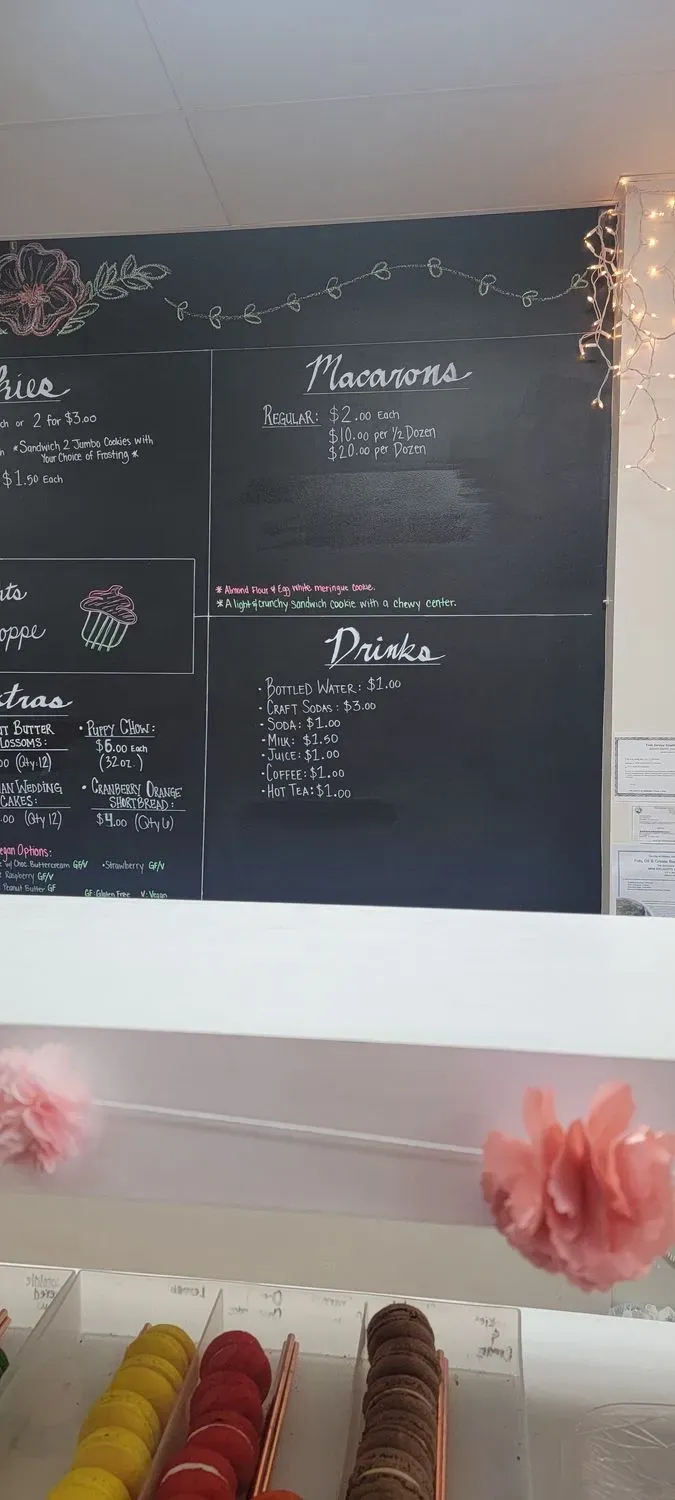 kies
ch or 2 for $3.00
*Sandwich 2 Jumbo Cookies with
Your Choice of Frosting *
$1.50 Each
Macarons
Regular: $2.00 Each
$10.00 per ½ Dozen
$20.00 per Dozen
* Almond Flour & Egg White meringue cookie.
* A light & crunchy sandwich cookie with a chewy center.
oppe
Drinks
• Bottled Water: $1.00
• Craft Sodas: $3.00
• Soda: $1.00
• Milk: $1.50
• Juice: $1.00
• Coffee: $1.00
• Hot Tea: $1.00
xtras
ut Butter
lossoms:
00 (Qty.12)
an Wedding
Cakes:
.00 (Qty 12)
• Puppy Chow:
$6.00 Each
(32oz.)
• Cranberry Orange
Shortbread:
$4.00 (Qty 6)
egan Options:
w/ Choc Buttercream GF/V
• Strawberry GF/V
Raspberry GF/V
Peanut Butter GF
GF: Gluten Free V: Vegan
Lemon